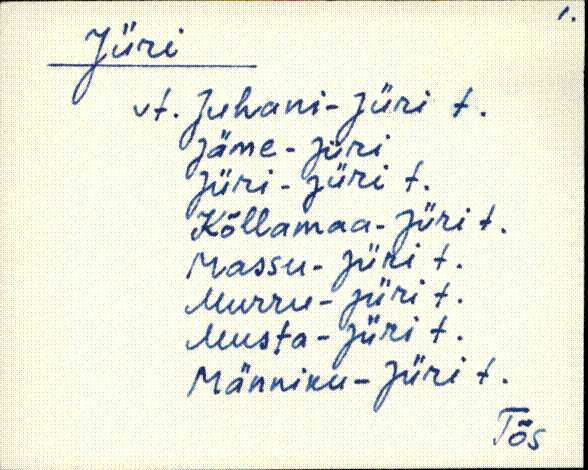 1.
Jüri
vt. Juhani-Jüri t.
Jäme-Jüri
Jüri-Jüri t.
Kõllamaa-Jüri t.
Massu-Jüri t.
Murru-Jüri t.
Musta-Jüri t.
Männiku-Jüri t.
Tõs